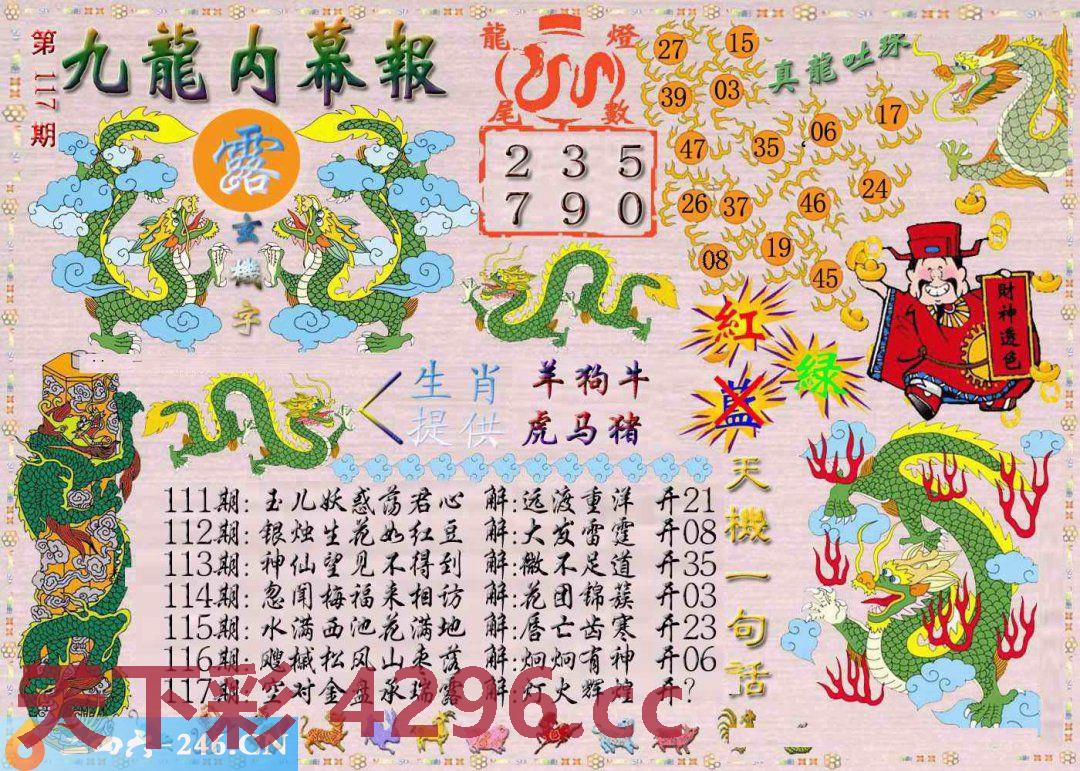 第117期
九龍内幕報
露
玄機字
龍燈
尾數
2 3 5
7 9 0
真龍吐珠
27 15
39 03
47 35 06 17
26 37 46 24
08 19 45
紅
绿
藍
財神透色
生肖
提供
羊狗牛
虎马猪
天機一句话
111期: 玉儿妖惑荡君心 解:远渡重洋 开21
112期: 银烛生花如红豆 解:大发雷霆 开08
113期: 神仙望见不得到 解:微不足道 开35
114期: 忽闻梅福来相访 解:花团锦簇 开03
115期: 水满西池花满地 解:唇亡齿寒 开23
116期: 飕槭松风山枣落 解:炯炯有神 开06
117期: 空对金盘承瑞露 解:灯火辉煌 开?
天下彩 4296.cc
=246.CN